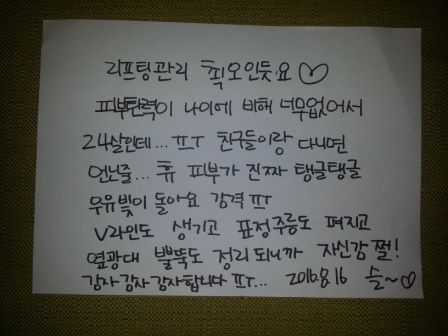 리프팅관리 최오인듯요♡
피부탄력이 나이에 비해 너무없어서
24살인데... ㅠㅜ 친구들이랑 다니면
언닌줄... 휴 피부가 진짜 탱글탱글
우유빛이 돌아요 감격 ㅠㅜ
V라인도 생기고 표정주름도 펴지고
옆광대 뿔뚝도 정리 되니까 자신감 쩔!
감사감사감사합니다 ㅠㅜ... 2016.8.16 슬~♡